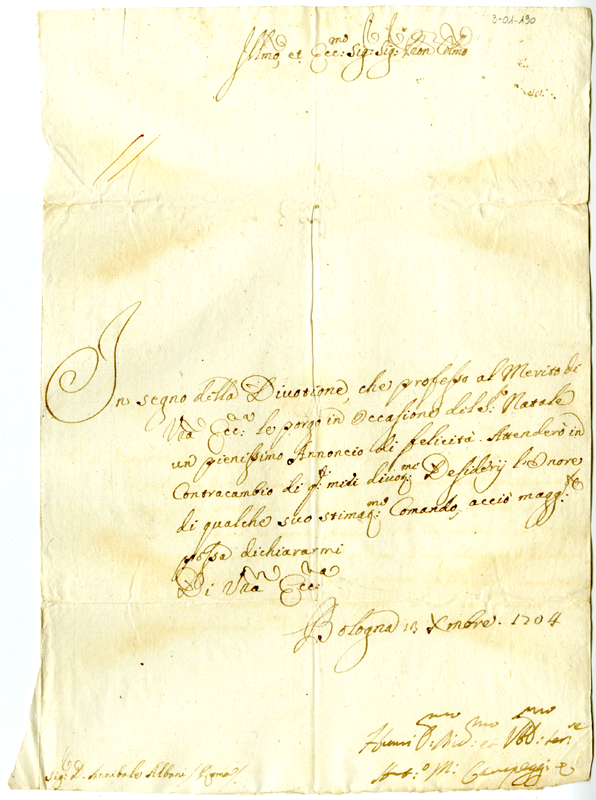 3-01-130
Illmo, et Ecc:mo Sig: Sig: Pron Colmo
In segno della Divotione, che professo al Merito di
Vra Ecc:a le porgo in Occasione del S:o Natale
un pienissimo Annoncio di felicità. Attenderò in
Contracambio di q:ti miei divot:mi Desiderij l'Onore
di qualche suo stimat:mo Comando, acciò magg:te
possa dichiararmi
Di Vra Ecc:a
Bologna 13 Xmbre. 1704
Ant:o M:
Sig: D. Annibale Albani / Roma /